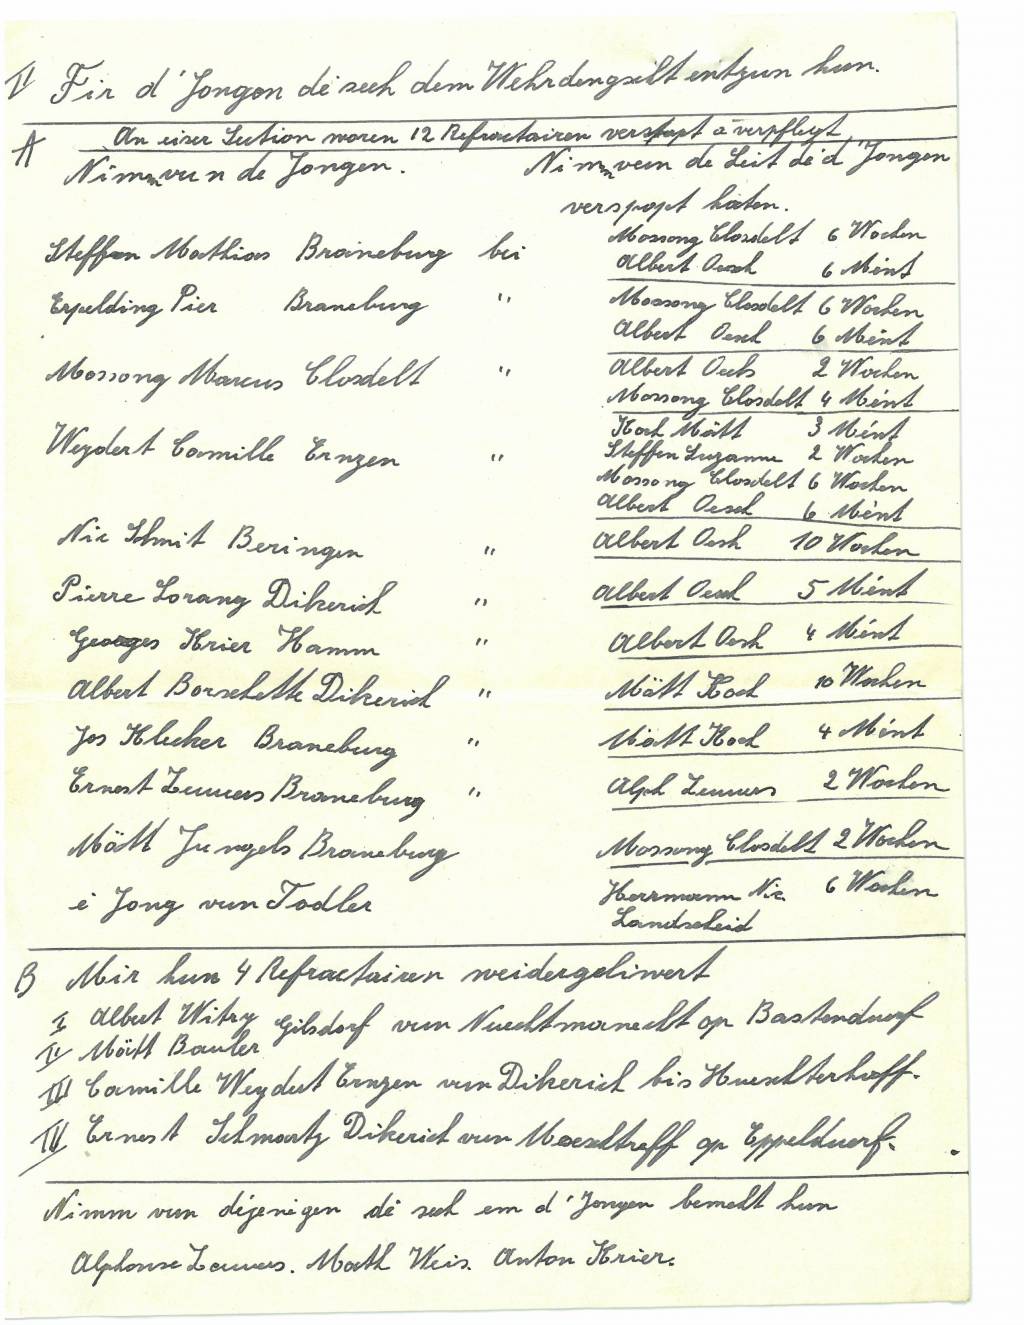 II Fir d'Jongen dé sech dem Wehrdengscht entzun hun.
A An eiser Section woren 12 Refractairen verstopt a verpflegt
Nimm vun de Jongen. Nimm vun de Leit dé d'Jongen
verstopt haten.
Steffen Mathias Braneburg bei Mossong Closdelt 6 Wochen
Albert Oesch 6 Mént
Erpelding Pier Braneburg " Mossong Closdelt 6 Wochen
Albert Oesch 6 Mént
Mossong Marcus Closdelt " Albert Oech 2 Wochen
Mossong Closdelt 4 Mént
Weydert Camille Ernzen " Koch Mätt 3 Mént
Steffen Suzanne 2 Wochen
Mossong Closdelt 6 Wochen
Albert Oesch 6 Mént
Nic Schmit Beringen " Albert Oesh 10 Wochen
Pierre Lorang Dikerich " Albert Oesch 5 Mént
Georges Krier Hamm " Albert Oesh 4 Mént
Albert Borschette Dikerich " Mätt Koch 10 Wochen
Jos Klecker Braneburg " Mätt Koch 4 Mént
Ernest Leuwers Braneburg " Alph Leuwers 2 Wochen
Mätt Jungels Braneburg Mossong Closdelt 2 Wochen
é Jong vun Todler Herrmann Nic. 6 Wochen
Landscheid
B Mir hun 4 Refractairen weidergeliwert
I Albert Witry Gilsdorf vun Nuechtmanecht op Bastenduerf
II Mätt Bauler
III Camille Weydert Ernzen vun Dikerich bis Hueschterhaff.
IV Ernest Schmartz Dikerich vun Meeschtreff op Eppelduerf.
Nimm vun déjenégen dé sech em d'Jongen bemeht hun
Alphonse Leuwers. Math Weis. Anton Krier.